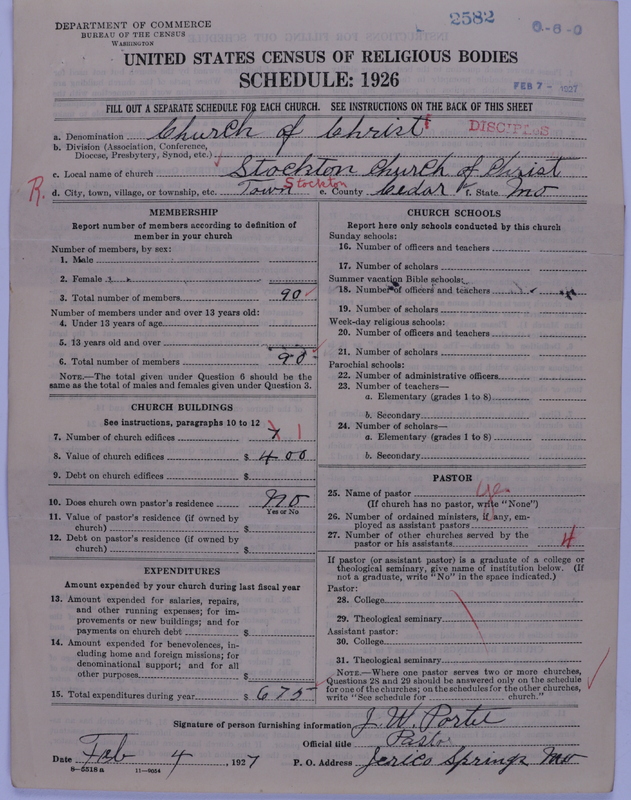 DEPARTMENT OF COMMERCE
BUREAU OF THE CENSUS
WASHINGTON
2582
6-8-0
UNITED STATES CENSUS OF RELIGIOUS BODIES
SCHEDULE: 1926
FEB 7 - 1927
FILL OUT A SEPARATE SCHEDULE FOR EACH CHURCH. SEE INSTRUCTIONS ON THE BACK OF THIS SHEET
a. Denomination Church of Christ
DISCIPLES
b. Division (Association, Conference,
Diocese, Presbytery, Synod, etc.)
c. Local name of church Stockton Church of Christ
R.
d. City, town, village, or township, etc. Town Stockton e. County Cedar f. State Mo
MEMBERSHIP
Report number of members according to definition of
member in your church
Number of members, by sex:
1. Male
2. Female
3. Total number of members 90
Number of members under and over 13 years old:
4. Under 13 years of age
5. 13 years old and over
6. Total number of members 90
NOTE.—The total given under Question 6 should be the
same as the total of males and females given under Question 3.
CHURCH BUILDINGS
See instructions, paragraphs 10 to 12
7. Number of church edifices 1
8. Value of church edifices $ 400
9. Debt on church edifices $
10. Does church own pastor's residence No
Yes or No
11. Value of pastor's residence (if owned by
church) $
12. Debt on pastor's residence (if owned by
church) $
EXPENDITURES
Amount expended by your church during last fiscal year
13. Amount expended for salaries, repairs,
and other running expenses; for im-
provements or new buildings; and for
payments on church debt $
14. Amount expended for benevolences, in-
cluding home and foreign missions; for
denominational support; and for all
other purposes $
15. Total expenditures during year $ 675
CHURCH SCHOOLS
Report here only schools conducted by this church
Sunday schools:
16. Number of officers and teachers
17. Number of scholars
Summer vacation Bible schools:
18. Number of officers and teachers
19. Number of scholars
Week-day religious schools:
20. Number of officers and teachers
21. Number of scholars
Parochial schools:
22. Number of administrative officers
23. Number of teachers—
a. Elementary (grades 1 to 8)
b. Secondary
24. Number of scholars—
a. Elementary (grades 1 to 8)
b. Secondary
PASTOR
25. Name of pastor yes
(If church has no pastor, write "None")
26. Number of ordained ministers, if any, em-
ployed as assistant pastors
27. Number of other churches served by the
pastor or his assistants 4
If pastor (or assistant pastor) is a graduate of a college or
theological seminary, give name of institution below. (If
not a graduate, write "No" in the space indicated.)
Pastor:
28. College
29. Theological seminary
Assistant pastor:
30. College
31. Theological seminary
NOTE.—Where one pastor serves two or more churches,
Questions 28 and 29 should be answered only on the schedule
for one of the churches; on the schedules for the other churches,
write "See schedule for church."
Signature of person furnishing information J. W. Porter
Official title Pastor
Date Feb 4, 1927 P. O. Address Jerico Springs Mo
8—5518 a 11—9054